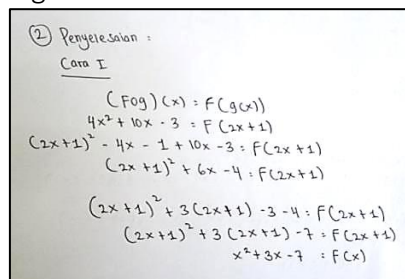 ② Penyelesaian :
Cara I
(Fog)(x) = F(g(x))
4x² + 10x - 3 = F(2x+1)
(2x+1)² - 4x - 1 + 10x - 3 = F(2x+1)
(2x+1)² + 6x - 4 = F(2x+1)
(2x+1)² + 3(2x+1) - 3 - 4 = F(2x+1)
(2x+1)² + 3(2x+1) - 7 = F(2x+1)
x² + 3x - 7 = F(x)